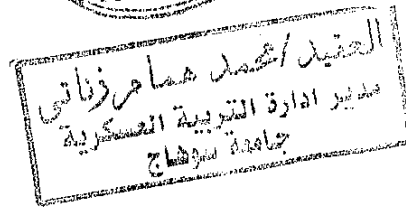 العقيد / محمد همام زناتى
مدير ادارة التربية العسكرية
جامعة سوهاج